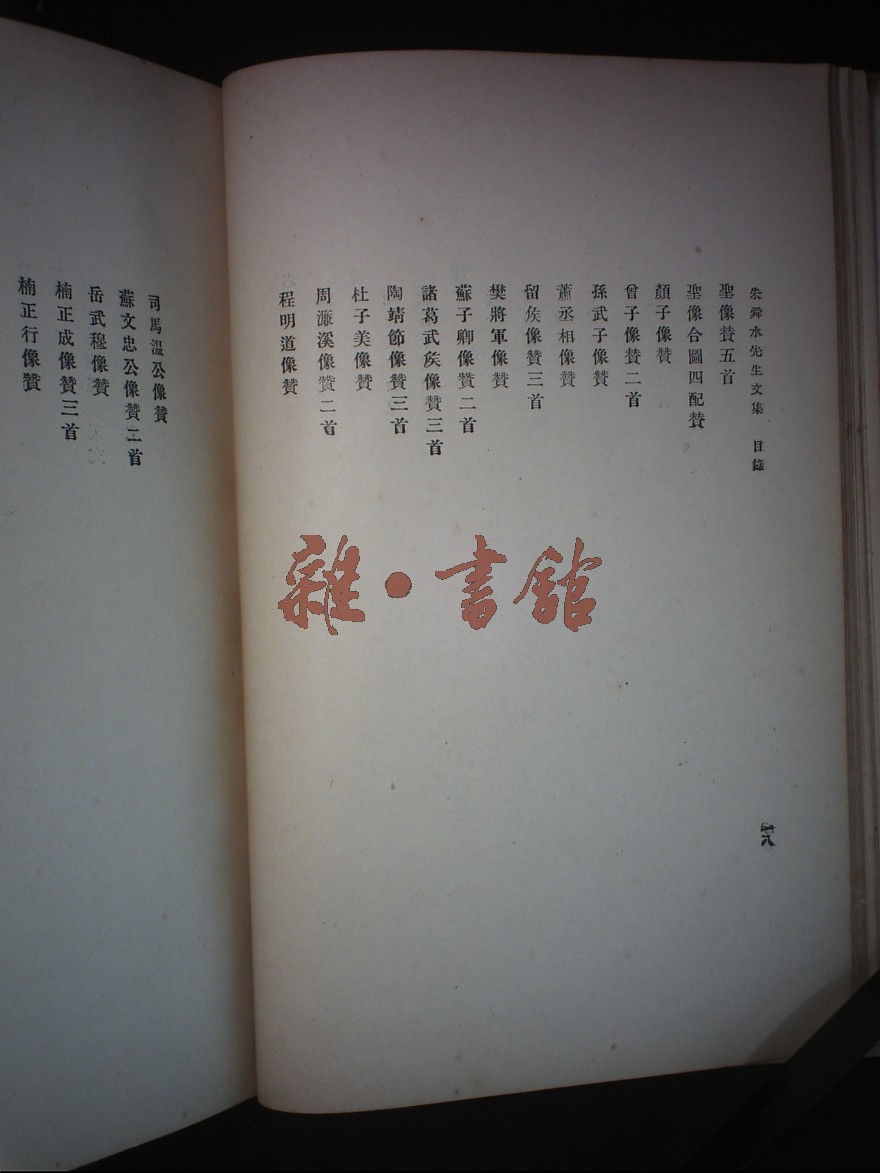 朱舜水先生文集 目錄
聖像贊五首
聖像合圖四配贊
顏子像贊
曾子像贊二首
孫武子像贊
蕭丞相像贊
留矦像贊三首
樊將軍像贊
蘇子卿像贊二首
諸葛武矦像贊三首
陶靖節像贊三首
杜子美像贊
周濂溪像贊二首
程明道像贊
司馬溫公像贊
蘇文忠公像贊二首
岳武穆像贊
楠正成像贊三首
楠正行像贊
雜·書館